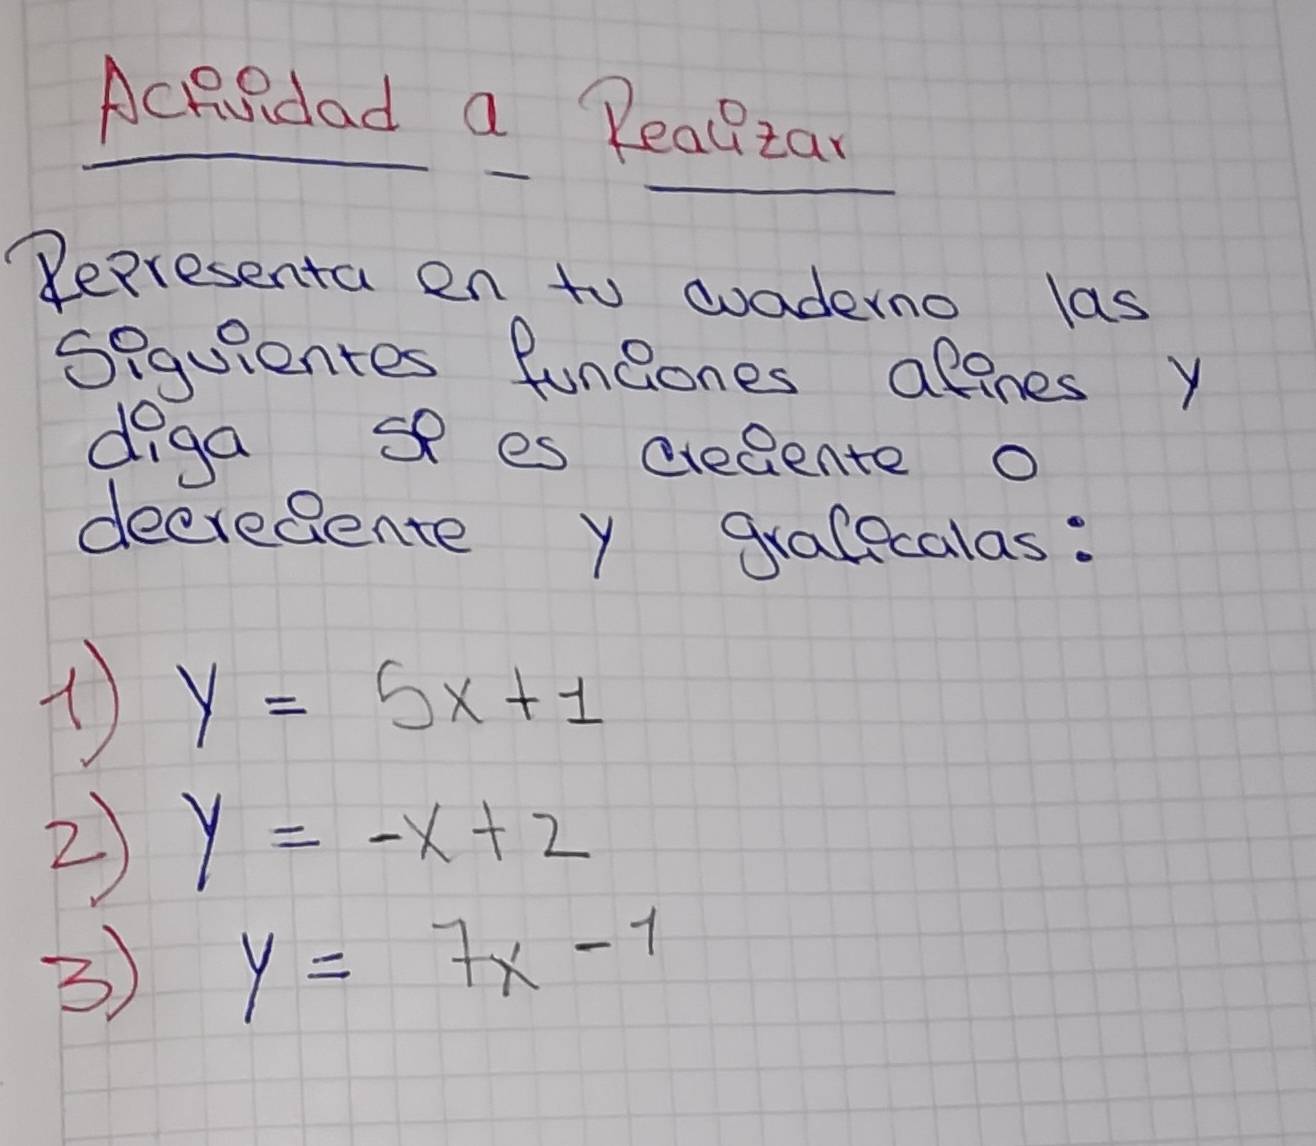 Actividad a Realizar
Representa en tu cuaderno las
siguientes funciones afines y
diga si es creciente o
decreciente y graficalas:
1) y = 5x+1
2) y = -x+2
3) y = 7x-1